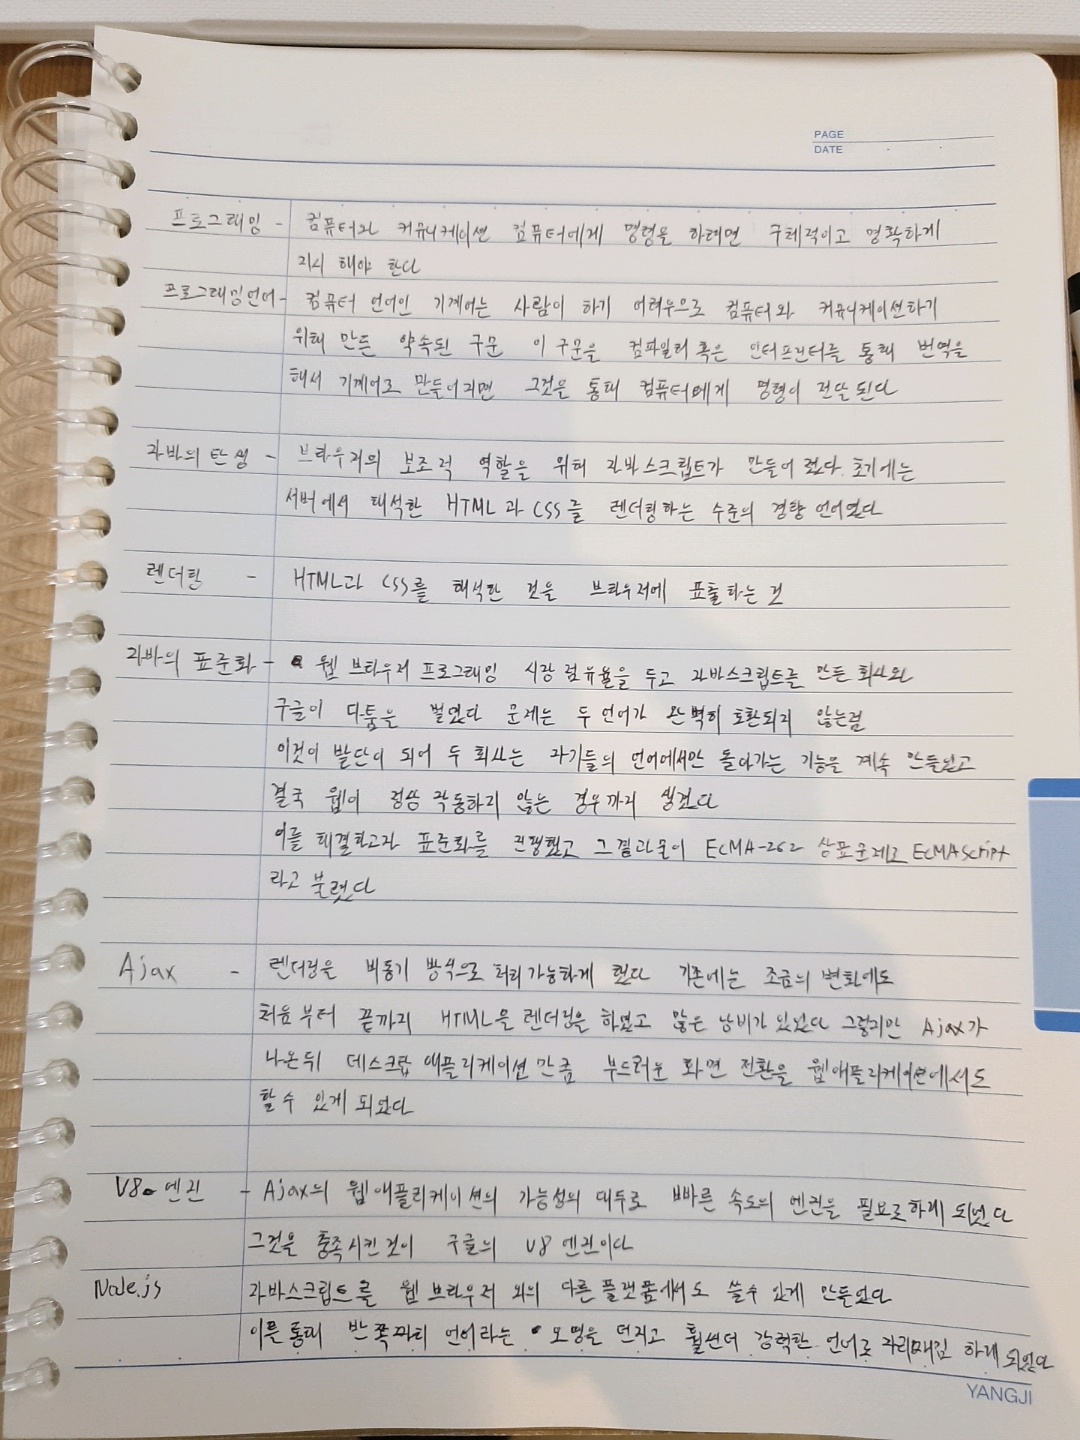 PAGE
DATE
프로그래밍 - 컴퓨터와 커뮤니케이션 컴퓨터에게 명령을 하려면 구체적이고 명확하게
지시 해야 한다
프로그래밍언어 - 컴퓨터 언어인 기계어는 사람이 하기 어려우므로 컴퓨터와 커뮤니케이션하기
위해 만든 약속된 구문 이 구문을 컴파일러 혹은 인터프린터를 통해 번역을
해서 기계어로 만들어지면 그것을 통해 컴퓨터에게 명령이 전달 된다
자바의 탄생 - 브라우저의 보조적 역할을 위해 자바스크립트가 만들어 졌다. 초기에는
서버에서 해석한 HTML과 CSS를 렌더링하는 수준의 경량 언어였다
렌더링 - HTML과 CSS를 해석한 것을 브라우저에 표출하는 것
자바의 표준화 - 웹 브라우저 프로그래밍 시장 점유율을 두고 자바스크립트를 만든 회사와
구글이 다툼을 벌였다 문제는 두 언어가 완벽히 호환되지 않는점
이것이 발단이 되어 두 회사는 자기들의 언어에서만 돌아가는 기능을 계속 만들었고
결국 웹이 정상 작동하지 않는 경우까지 생겼다
이를 해결하고자 표준화를 진행했고 그 결과물이 ECMA-262 상표문제로 ECMAScript
라고 불렀다
Ajax - 렌더링을 비동기 방식으로 처리 가능하게 했다 기존에는 조금의 변화에도
처음 부터 끝까지 HTML을 렌더링을 하였고 많은 낭비가 있었다 그렇지만 Ajax가
나온뒤 데스크탑 애플리케이션 만큼 부드러운 화면 전환을 웹애플리케이션에서도
할 수 있게 되었다
V8 엔진 - Ajax의 웹애플리케이션의 가능성의 대두로 빠른 속도의 엔진을 필요로하게 되었다
그것을 충족시킨것이 구글의 V8 엔진이다
Node.js 자바스크립트를 웹 브라우저 외의 다른 플랫폼에서도 쓸수 있게 만들었다
이를 통해 반쪽짜리 언어라는 오명을 던지고 훨씬더 강력한 언어로 자리매김 하게 되었다
YANGJI